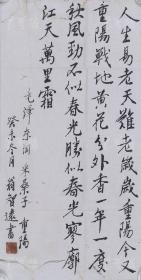 人生易老天难老歲歲重陽今又
重陽戰地黄花分外香一年一度
秋風勁不似春光勝似春光寥廓
江天萬里霜
毛澤東詞采桑子重陽
癸未冬月 翁智遠書